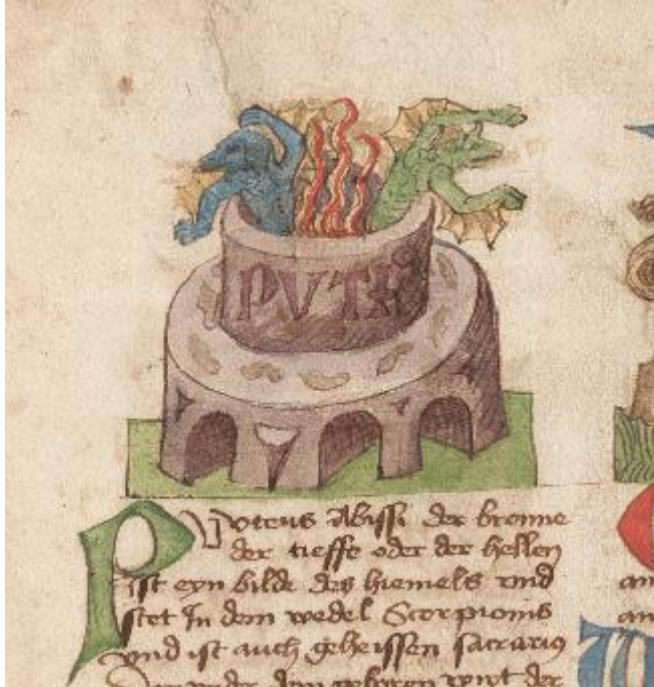 PVTE
Puteus Abissi der bronne
der tieffe oder der hellen
ist eyn bilde des hiemels vnd
stet In dem wedel Scorpionis
vnd ist auch geheissen sacrarius
dem geboren wirt der
an
an